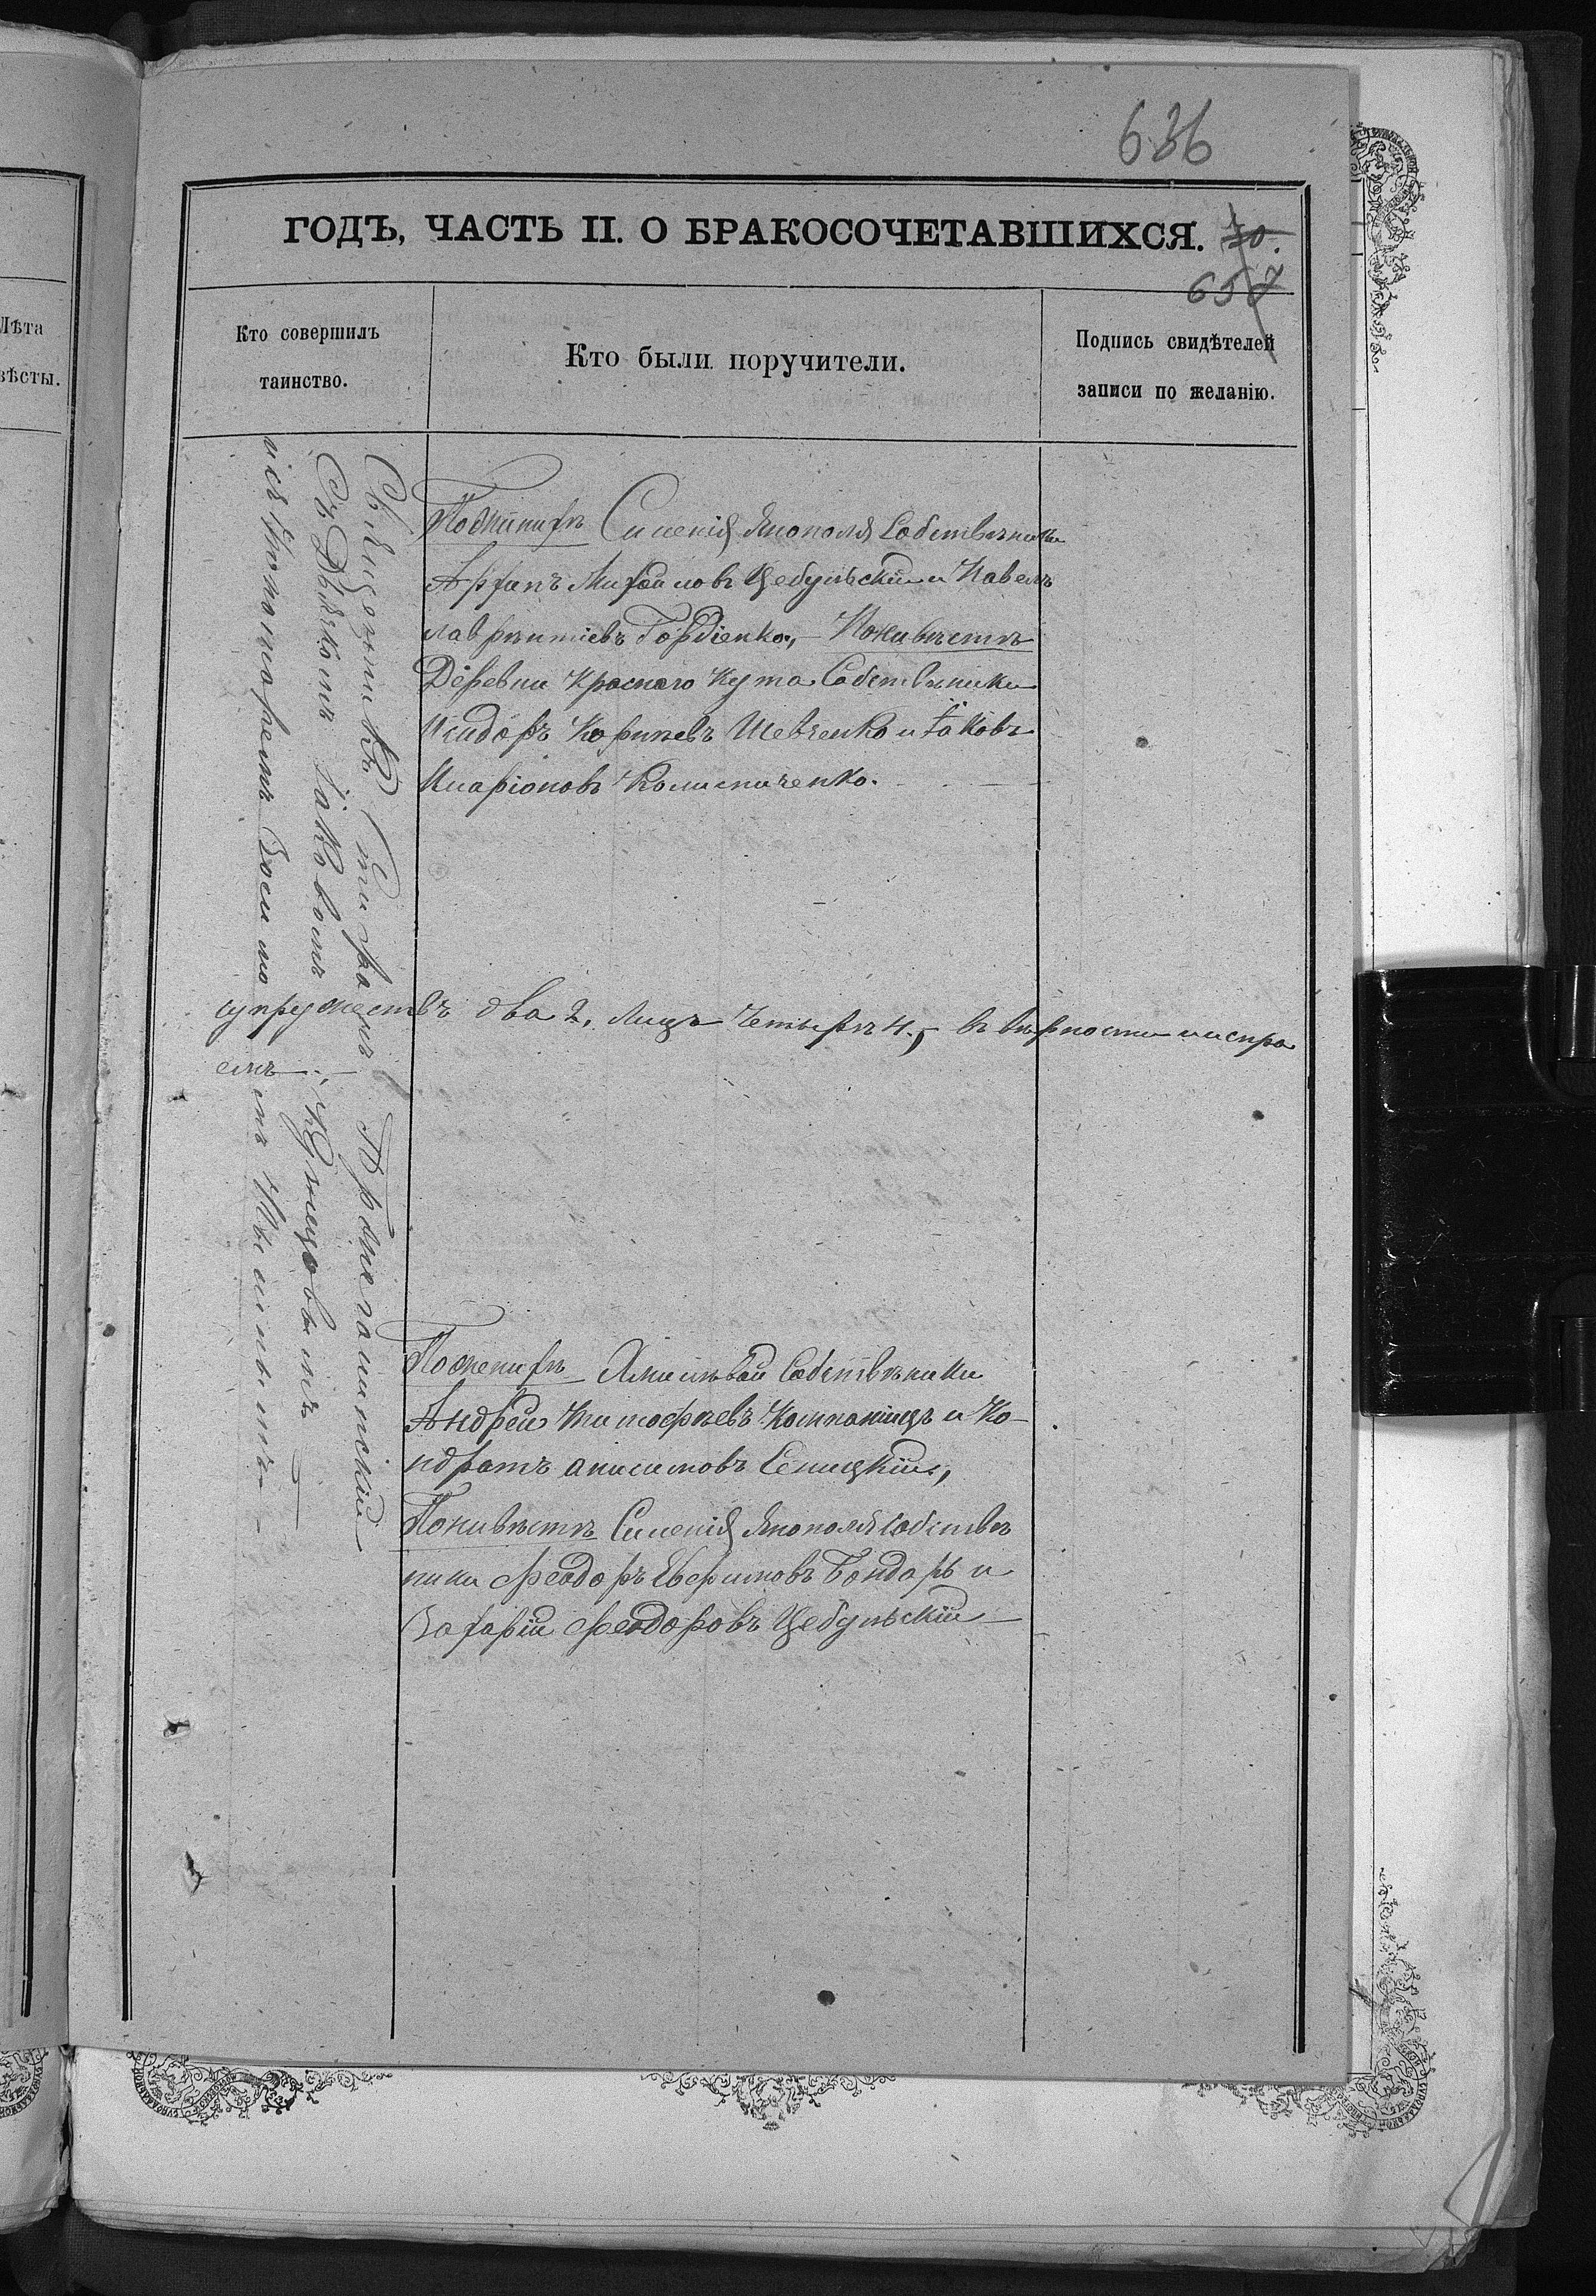 636
ГОДЪ, ЧАСТЬ II. О БРАКОСОЧЕТАВШИХСЯ.
657
Лѣта
вѣсты.
Кто совершилъ
таинство.
Кто были поручители.
Подпись свидѣтелей
записи по желанію.
Священникъ Тигранъ
Съ Дьячкомъ Іаковомъ Кунцовымъ
и съ Пономаремъ
Пожених Сименія Янополя Собственники
Архипъ Михайловъ Цебульскій и Павелъ
Лаврентіевъ Гордіенко, Поневѣстѣ
Деревни Краснаго Кута Собственники
Исидоръ Корніевъ Шевченко и Іаковъ
Иларіоновъ Колисниченко.
супружествъ два 2, Лицъ четыре 4, въ вѣрности и испра
емъ
Пожених Хмилевой Собственники
Андрей Тимофѣевъ Компаніецъ и Ко-
ндратъ Анисимовъ Сеницкій,
Поневѣстѣ Сименія Янополя собствен
ники Феодоръ Ефримовъ Бондарь и
Захарій Феодоровъ Цебульскій